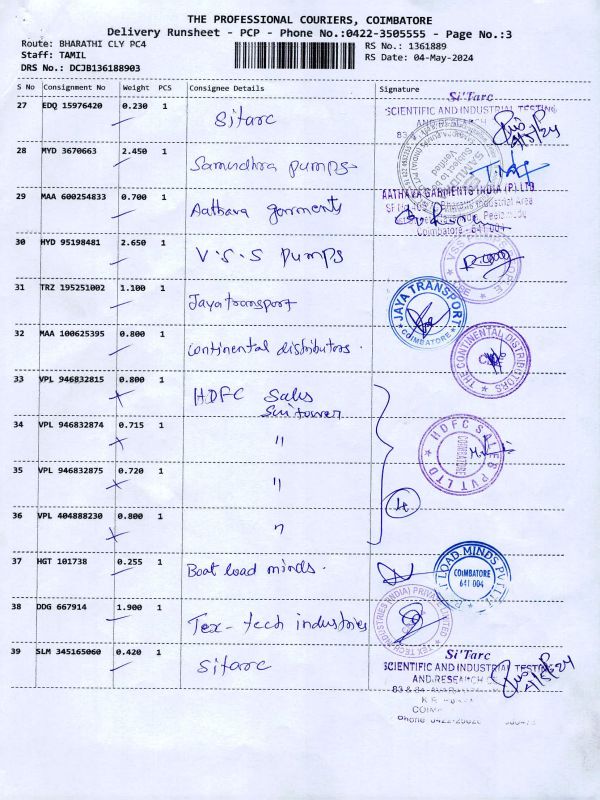 THE PROFESSIONAL COURIERS, COIMBATORE
Delivery Runsheet - PCP - Phone No.:0422-3505555 - Page No.:3
Route: BHARATHI CLY PC4
RS No.: 1361889
Staff: TAMIL
RS Date: 04-May-2024
DRS No.: DCJB136188903
S No Consignment No Weight PCS Consignee Details Signature
27 EDQ 15976420 0.230 1 Sitarc
Si'Tarc
SCIENTIFIC AND INDUSTRIAL TESTING
AND RESEARCH
28 MYD 3670663 2.450 1 Samudhra pumps
29 MAA 600254833 0.700 1 Aathava garments
AATHAVA GARMENTS INDIA (P) LTD
Industrial Area
Coimbatore - 641 004
30 HYD 95198481 2.650 1 V.S.S Pumps
31 TRZ 195251002 1.100 1 Jayatransport
JAYA TRANSPORT
COIMBATORE
32 MAA 100625395 0.800 1 continental distributors.
THE CONTINENTAL DISTRIBUTORS
CBE
33 VPL 946832815 0.800 1 HDFC Sales
34 VPL 946832874 0.715 1 "
HDFC SALES PVT LTD
COIMBATORE
35 VPL 946832875 0.720 1 "
4
36 VPL 404888230 0.800 1 "
37 HGT 101738 0.255 1 Boat load minds.
LOAD MINDS PVT LTD
COIMBATORE
641 004
38 DDG 667914 1.900 1 Tex-tech industries
TEX TECH INDUSTRIES (INDIA) PRIVATE LIMITED
39 SLM 345165060 0.420 1 Sitarc
Si'Tarc
SCIENTIFIC AND INDUSTRIAL TESTING
AND RESEARCH